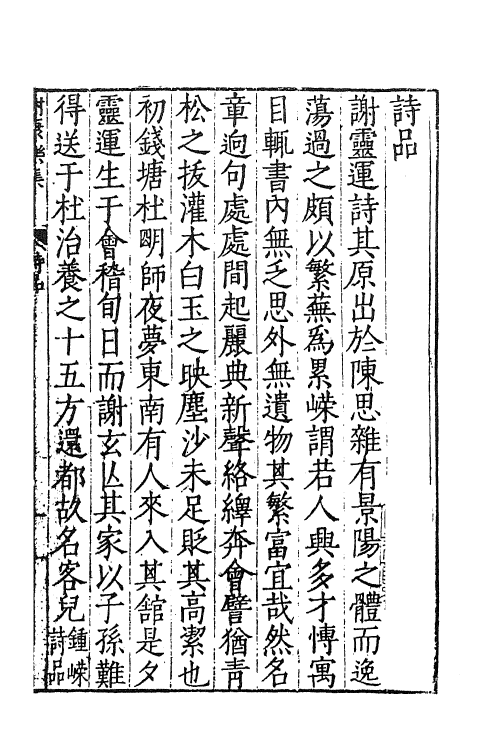 詩品
謝靈運詩其原出於陳思雜有景陽之體而逸
蕩過之頗以繁蕪爲累嶸謂若人興多才愽寓
目輒書內無乏思外無遺物其繁富宜哉然名
章逈句處處間起麗典新聲絡繹奔會譬猶青
松之拔灌木白玉之映塵沙未足貶其高潔也
初錢塘杜明師夜夢東南有人來入其舘是夕
靈運生于會稽旬日而謝玄亾其家以子孫難
得送于杜治養之十五方還都故名客兒鍾嶸詩品